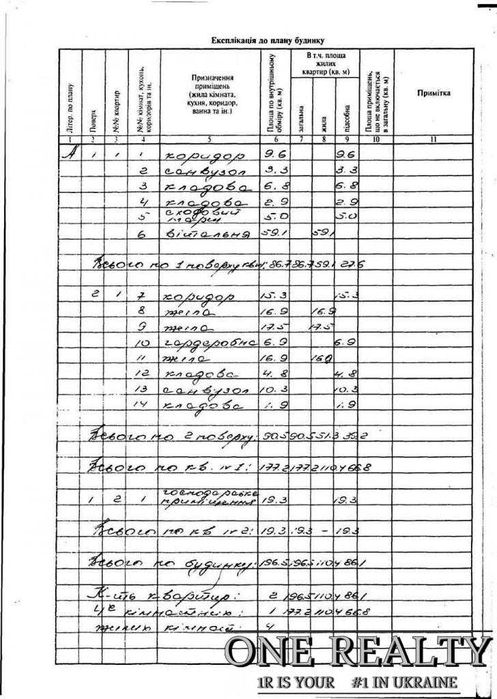 Експлікація до плану будинку
Літер. по плану | Поверх | №№ квартир | №№ кімнат, кухонь, коридорів та ін. | Призначення приміщень (жила кімната, кухня, коридор, ванна та ін.) | Площа по внутрішньому обміру (кв. м) | В т.ч. площа жилих квартир (кв. м) | загальна | жила | підсобна | Площа приміщень, що не включається в загальну (кв. м) | Примітка
1 2 3 4 5 6 7 8 9 10 11
А 1 1 1 коридор 9.6 9.6
2 санвузол 3.3 3.3
3 кладова 6.8 6.8
4 кладова 2.9 2.9
5 сходовий марш 5.0 5.0
6 вітальня 59.1 59.1
Всього по 1 поверху кв.1: 86.7 86.7 59.1 27.6
2 1 7 коридор 15.3 15.3
8 жила 16.9 16.9
9 жила 17.5 17.5
10 гардеробна 6.9 6.9
11 жила 16.9 16.9
12 кладова 4.8 4.8
13 санвузол 10.3 10.3
14 кладова 1.9 1.9
Всього по 2 поверху: 90.5 90.5 51.3 39.2
Всього по кв. №1: 177.2 177.2 110.4 66.8
1 2 1 господарське приміщення 19.3 19.3
Всього по кв №2: 19.3 19.3 - 19.3
Всього по будинку: 196.5 196.5 110.4 86.1
К-ть квартир: 2 196.5 110.4 86.1
4х кімнатних: 1 177.2 110.4 66.8
житих кімнат: 4
ONE REALTY
1R IS YOUR #1 IN UKRAINE